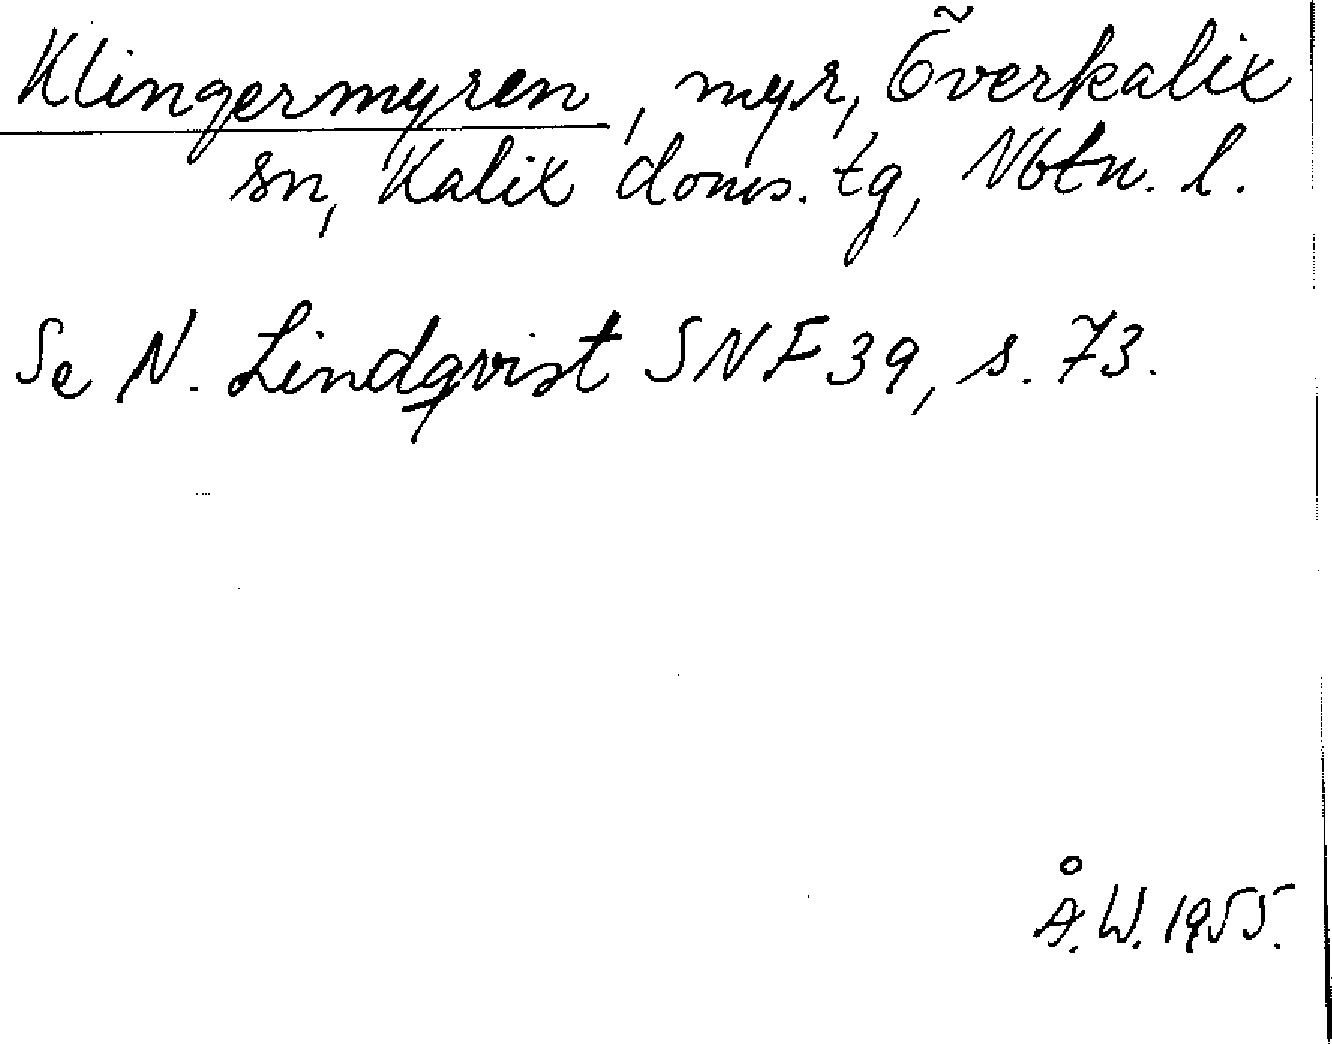 Klingermyren, myr, Överkalix
sn, Kalix doms. tg, Nbtn. l.
Se N. Lindqvist SNF 39, s. 73.
Å.W. 1955.